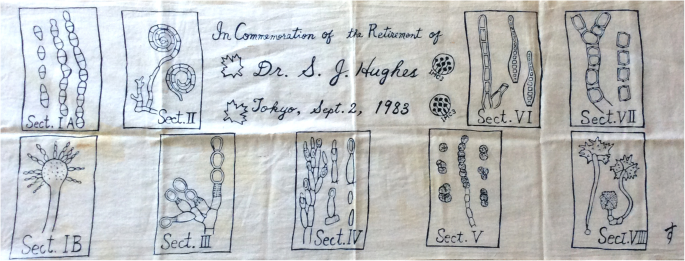 In Commemoration of the Retirement of
Dr. S. J. Hughes
Tokyo, Sept. 2, 1983
Sect. IA
Sect. II
Sect. VI
Sect. VII
Sect. IB
Sect. III
Sect. IV
Sect. V
Sect. VIII